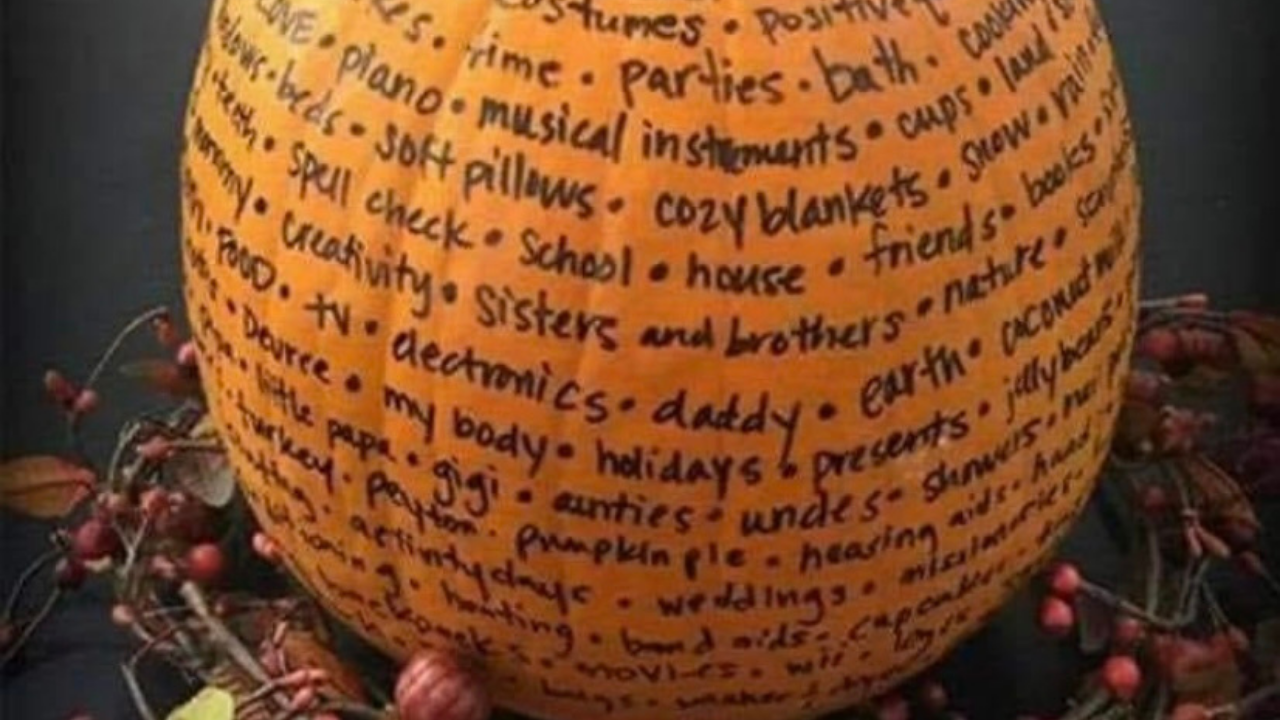 costumes • positive
LOVE • time • parties • bath • cooking
piano • musical instruments • cups • land
beds • soft pillows • cozy blankets • snow
teeth • spell check • school • house • friends • books
mommy • creativity • sisters and brothers • nature
FOOD • tv • electronics • daddy • earth • coconut
Deuree • my body • holidays • presents • jellybeans
little papa • gigi • aunties • uncles • showers
turkey • payton • pumpkin pie • hearing aids
activity days • weddings • missionaries
hunting • band aids • cupcakes
movies • wii
hugs